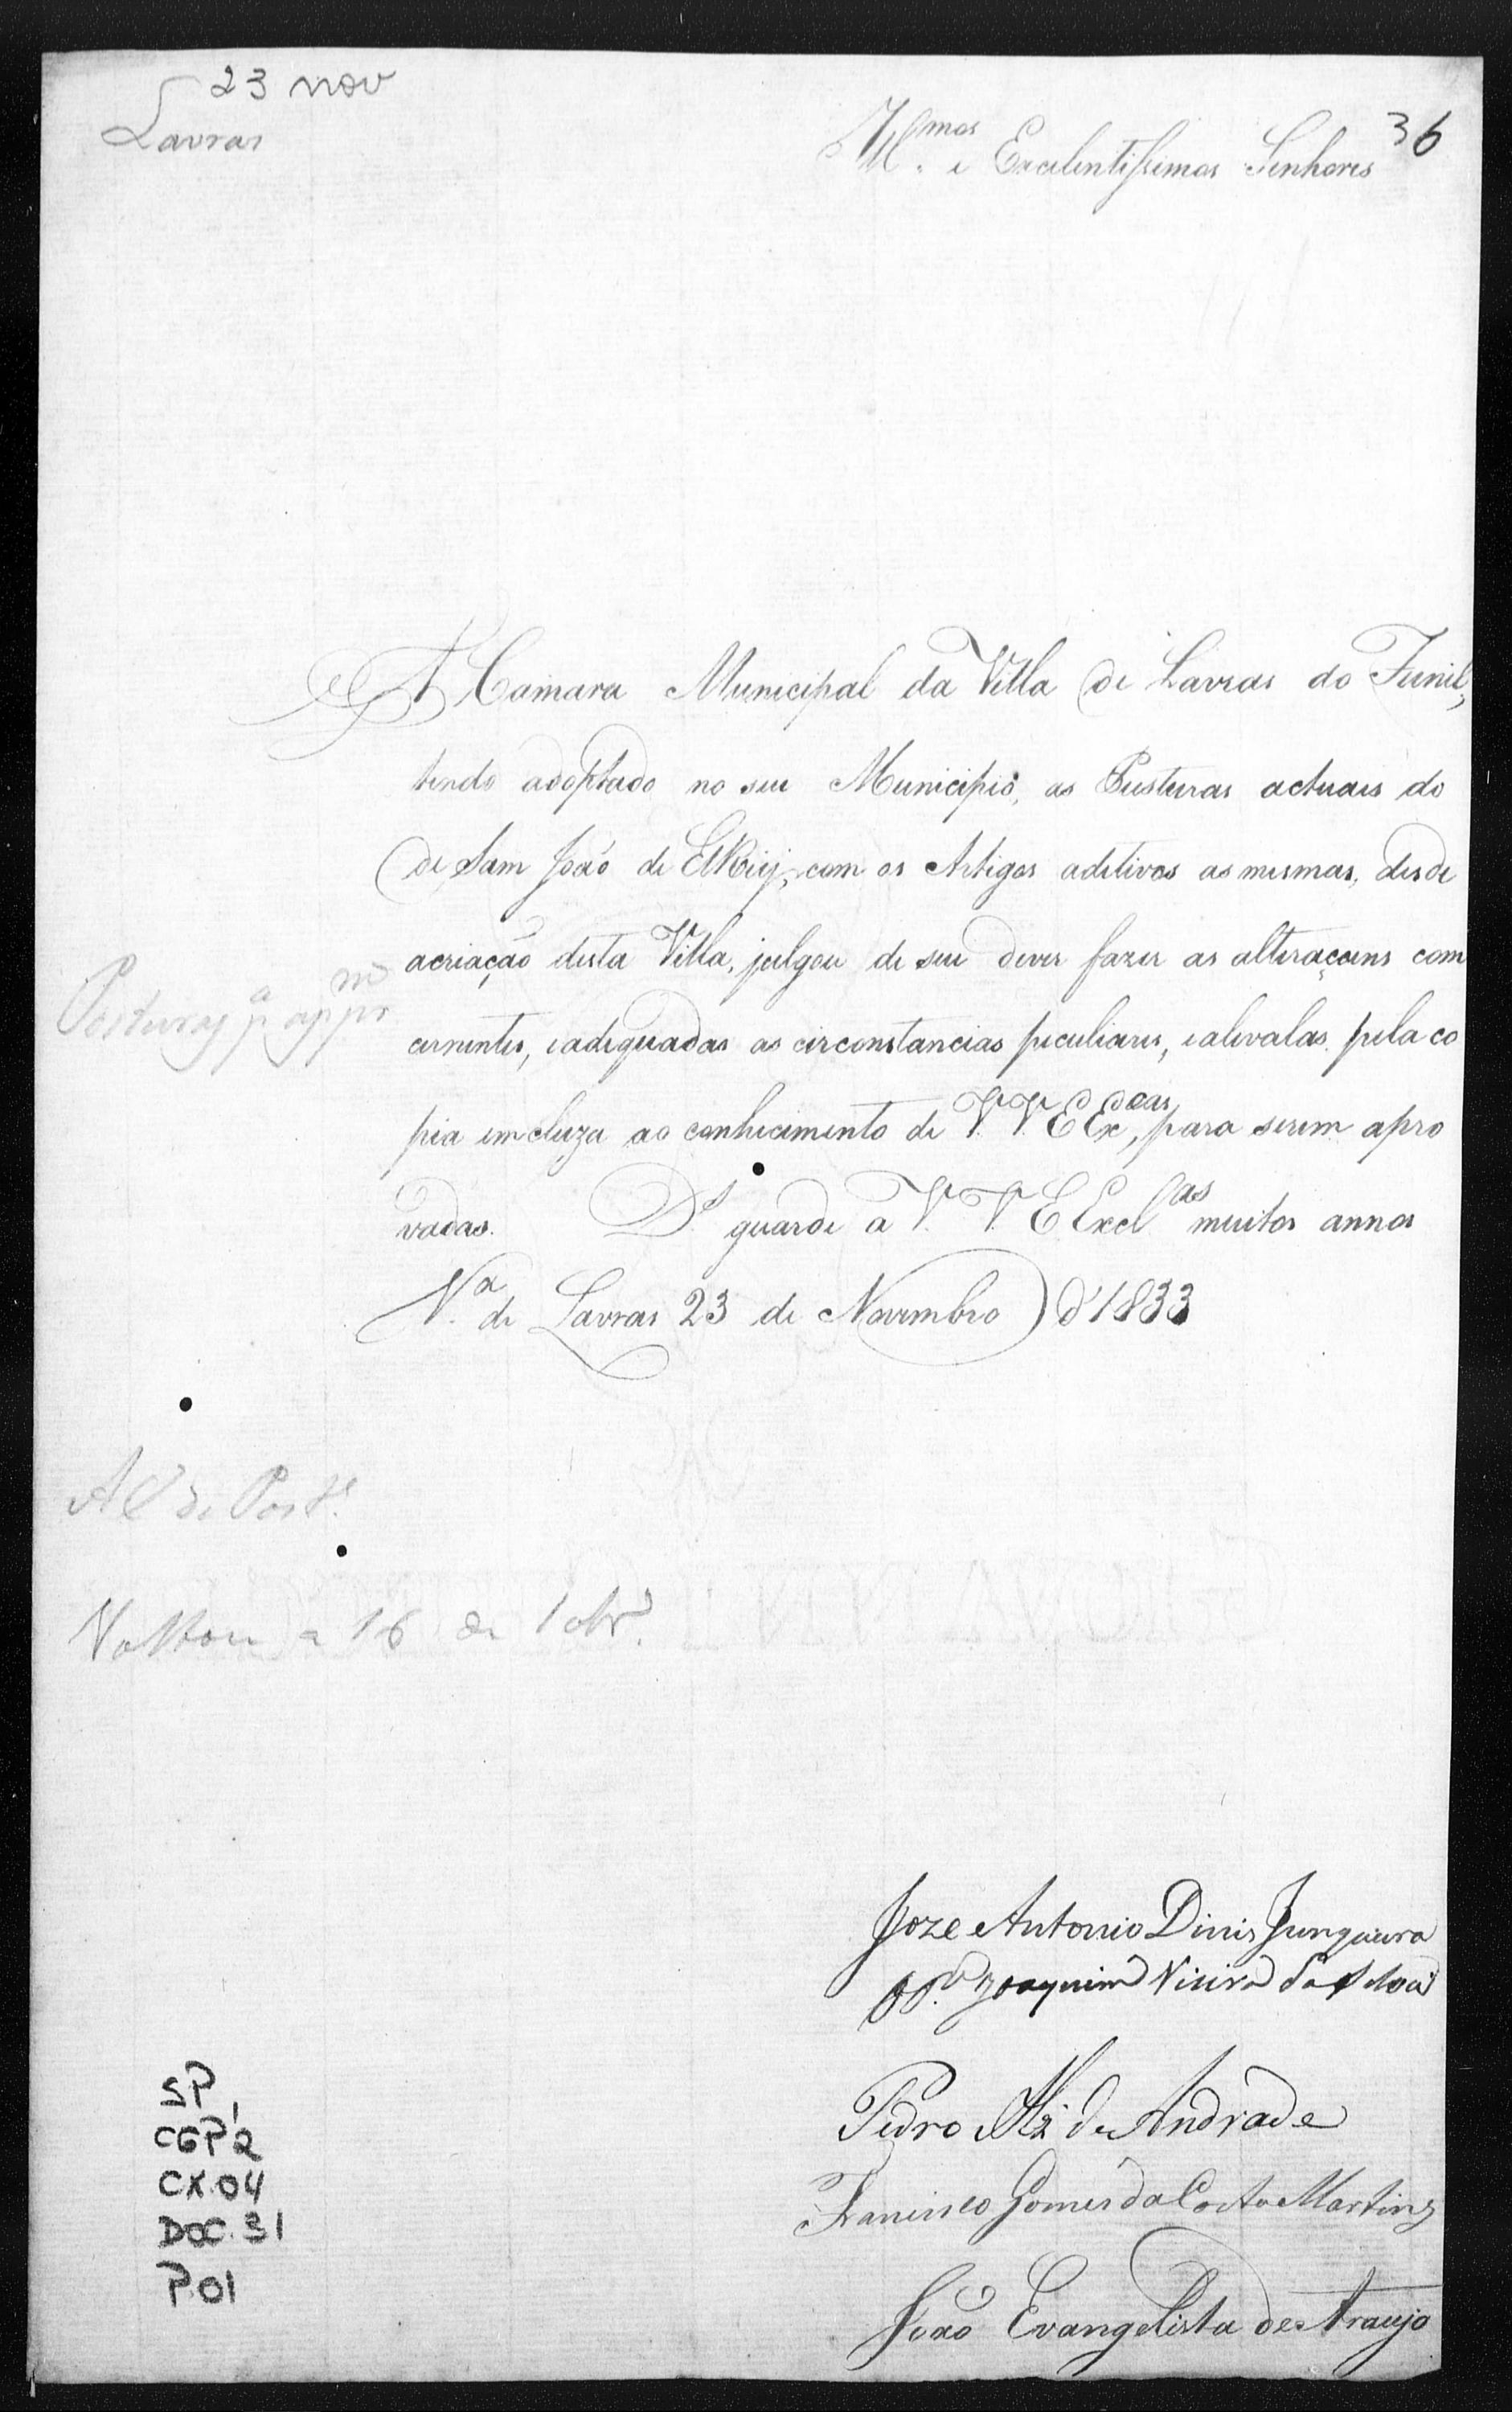 23 nov
Lavras
36
Ill.mos e Excelentissimos Senhores
A Camara Municipal da Villa de Lavras do Funil,
tendo adoptado no seu Municipio, as Pusturas actuais do
de Sam João de ElRey, com os Artigos aditivos as mesmas, desde
acriação desta Villa, julgou de seu dever fazer as alteraçoens com
cernentes, eadequadas as circonstancias peculiares, ealevalas pela co
pia emcluza ao conhecimento de V.V.EEx.cas, para serem apro
vadas. D.s guarde a V.V.EExcl.as muitos annos
V.a de Lavras 23 de Novembro d'1833
Posturas p.a app.m
A C. de Post.s
Voltou a 16 de
Joze Antonio Dinis Junqueira
Joaquim Vieira da Silva
Pedro Alz' de Andrade
Francisco Gomes da Costa Martins
João Evangelista de Araujo
SP
CGP'2
CX.04
DOC.31
P.01